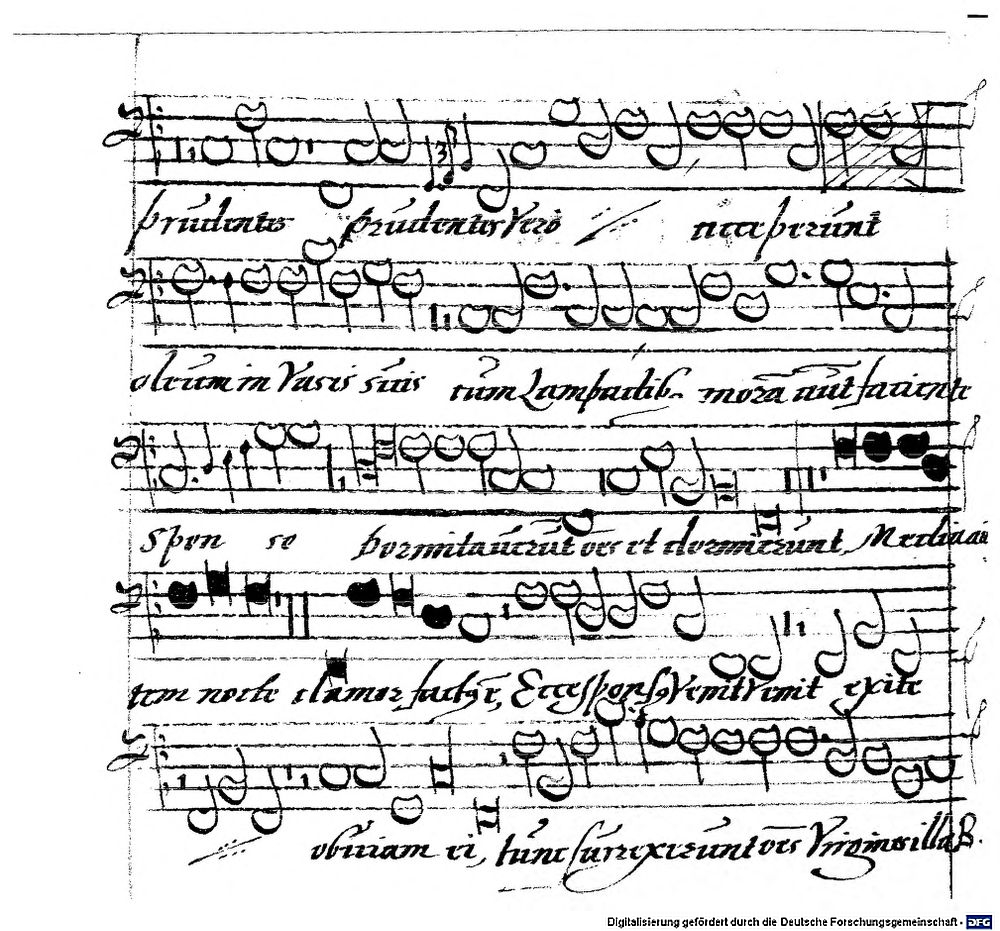 prudentes prudentes vero acceperunt
oleum in Vasis suis cum Lampadib. morã aut faciente
Spon so Dormitauerũt oẽs et dormierunt, Media aũ
tem nocte clamor factꝰ ẽ, Ecce sponsꝰ Venit Venit exite
obuiam ei, tunc surrexerunt oẽs Virgines illa B.
Digitalisierung gefördert durch die Deutsche Forschungsgemeinschaft - DFG